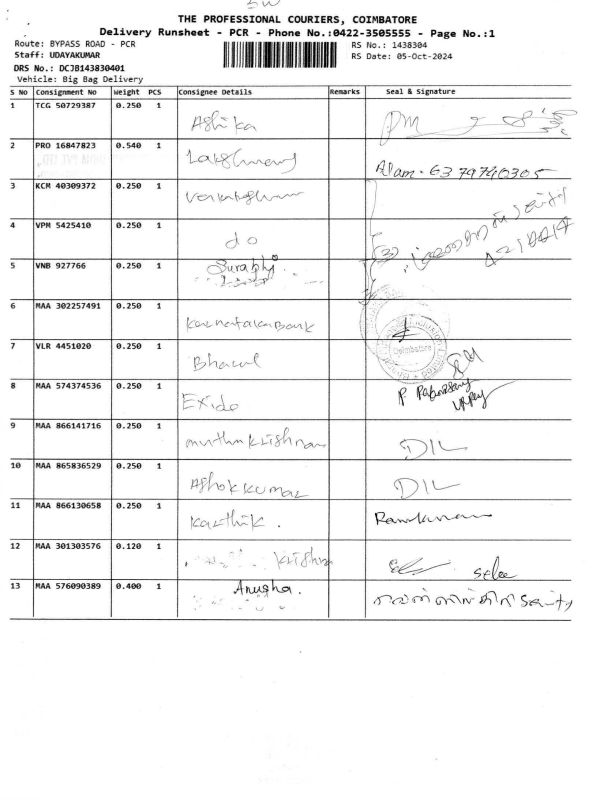 THE PROFESSIONAL COURIERS, COIMBATORE
Delivery Runsheet - PCR - Phone No.:0422-3505555 - Page No.:1
Route: BYPASS ROAD - PCR RS No.: 1438304
Staff: UDAYAKUMAR RS Date: 05-Oct-2024
DRS No.: DCJB143830401
Vehicle: Big Bag Delivery
S No Consignment No Weight PCS Consignee Details Remarks Seal & Signature
1 TCG 50729387 0.250 1 Ashika
2 PRO 16847823 0.540 1 Alam. 6379740305
3 KCM 40309372 0.250 1
4 VPM 5425410 0.250 1 do
5 VNB 927766 0.250 1 Surabhi
6 MAA 302257491 0.250 1 Karnataka Bank
7 VLR 4451020 0.250 1 Coimbatore
8 MAA 574374536 0.250 1 Exide
9 MAA 866141716 0.250 1 muthu Krishnan DIL
10 MAA 865836529 0.250 1 Ashok Kumar DIL
11 MAA 866130658 0.250 1 Karthik.
12 MAA 301303576 0.120 1 Krishna
13 MAA 576090389 0.400 1 Anusha.